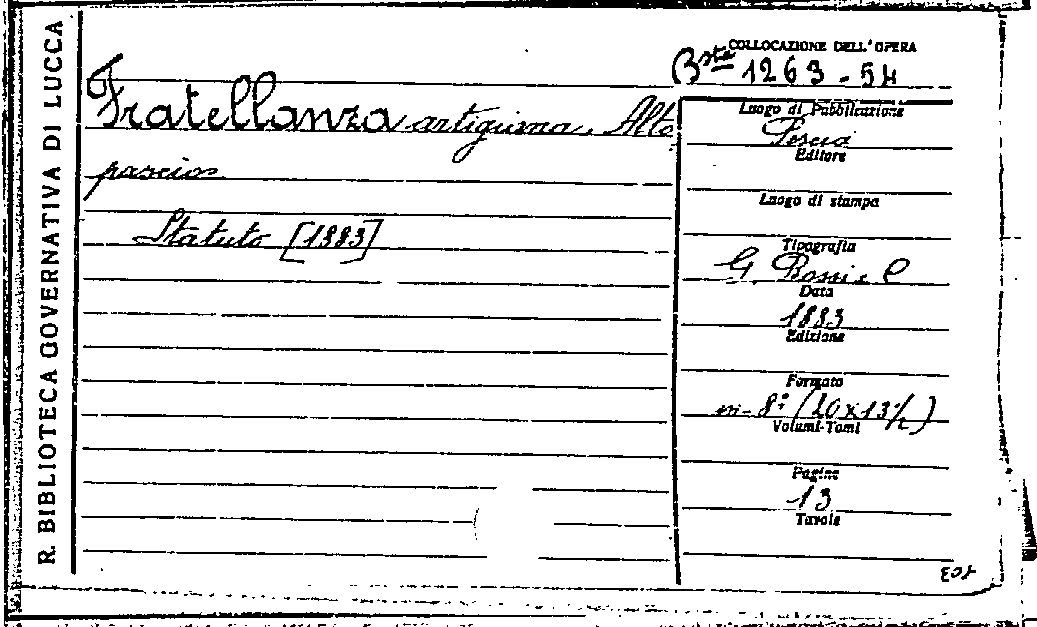 R. BIBLIOTECA GOVERNATIVA DI LUCCA
Fratellanza artigiana. Alto
pascio
Statuto [1883]
COLLOCAZIONE DELL'OPERA
Bta 1263-54
Luogo di Pubblicazione
Pescia
Editore
Luogo di stampa
Tipografia
G. Rossi e C
Data
1883
Edizione
Formato
in-8° (20x13½)
Volumi-Tomi
Pagine
13
Tavole